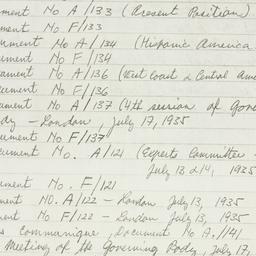 ument No A/133 (Present Position)
ment No F/133
ument No A/134 (Hispanic America
ument No F/134
ument No A/136 (West Coast & Central Ame
cument No F/136
ument No A/137 (4th session of Gove
dy - London, July 17, 1935
ument No F/137
cument No. A/121 (Experts Committee -
July 13 & 14, 1935
ument No. F/121
ment NO. A/122 - London July 13, 1935
ment No F/122 - London July 13, 1935
s Communique, Document No A./141
Meeting of the Governing Body, July 17,